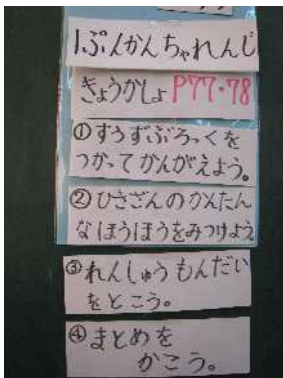 1ぷんかんちゃれんじ
きょうかしょ P77・78
①すうずぶろっくを
つかってかんがえよう。
②ひきざんのかんたん
なほうほうをみつけよう。
③れんしゅうもんだい
をとこう。
④まとめを
かこう。